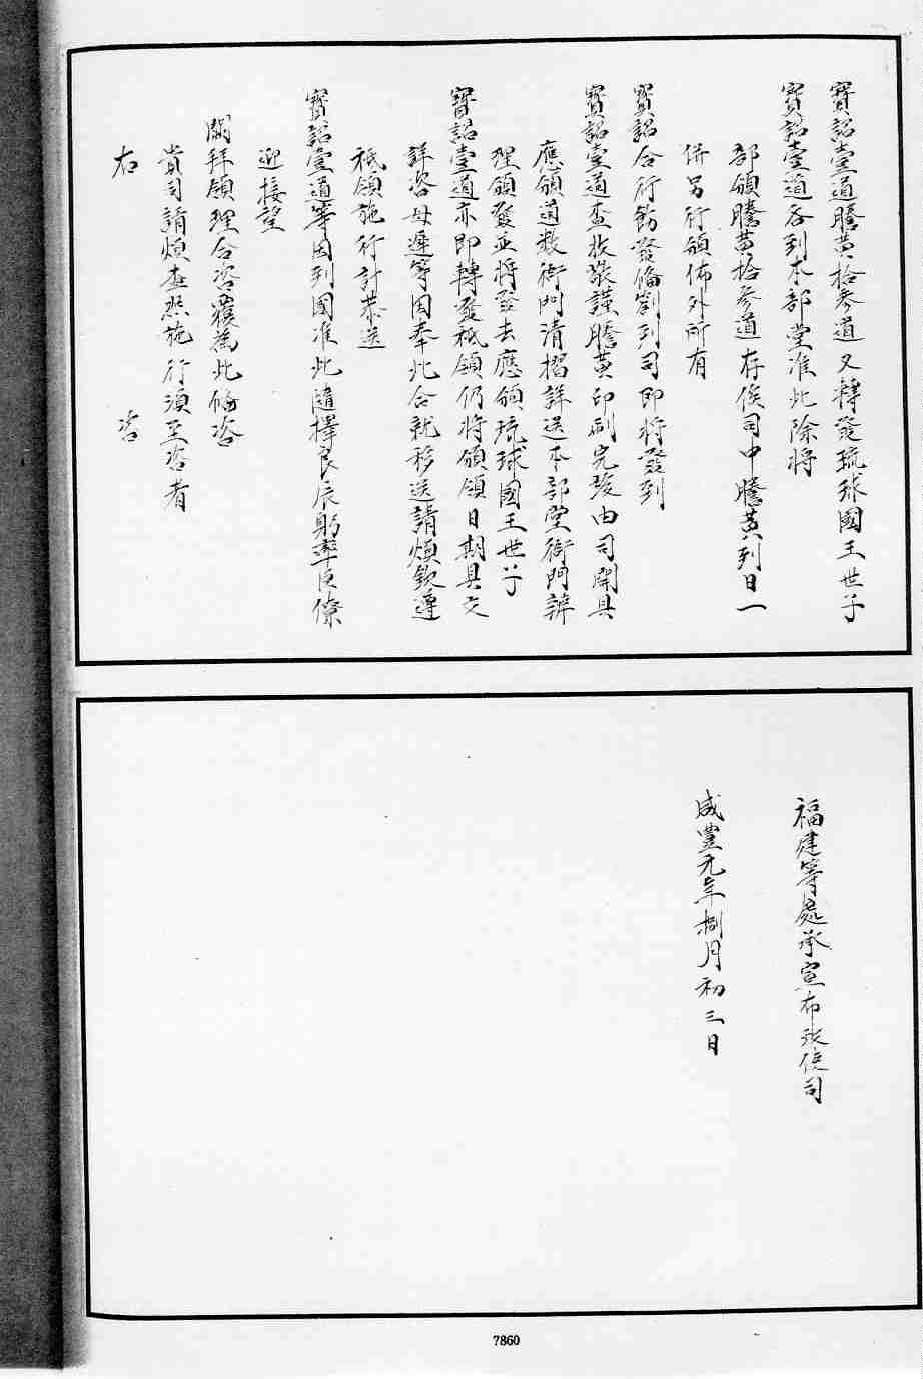 寶詔壹道謄黃拾參道又轉發琉球國王世子
寶詔壹道咨到本部堂准此除將
部頒謄黃拾參道存俟司中謄黃到日一
併另行頒佈外所有
寶詔合行飭發備劄到司即將發到
寶詔壹道查收裝謹謄黃印刷完竣由司開具
應頒道數衙門清摺詳送本部堂衙門辦
理頒發並將發去應頒琉球國王世子
寶詔壹道亦即轉發祇領仍將頒領日期具文
詳咨毋遲等因奉此合就移送請煩欽遵
祇領施行計恭送
寶詔壹道等因到國准此隨擇良辰躬率臣僚
迎接望
闕拜領理合咨覆為此備咨
貴司請煩查照施行須至咨者
右　咨
福建等處承宣布政使司
咸豐元年捌月初三日
7860